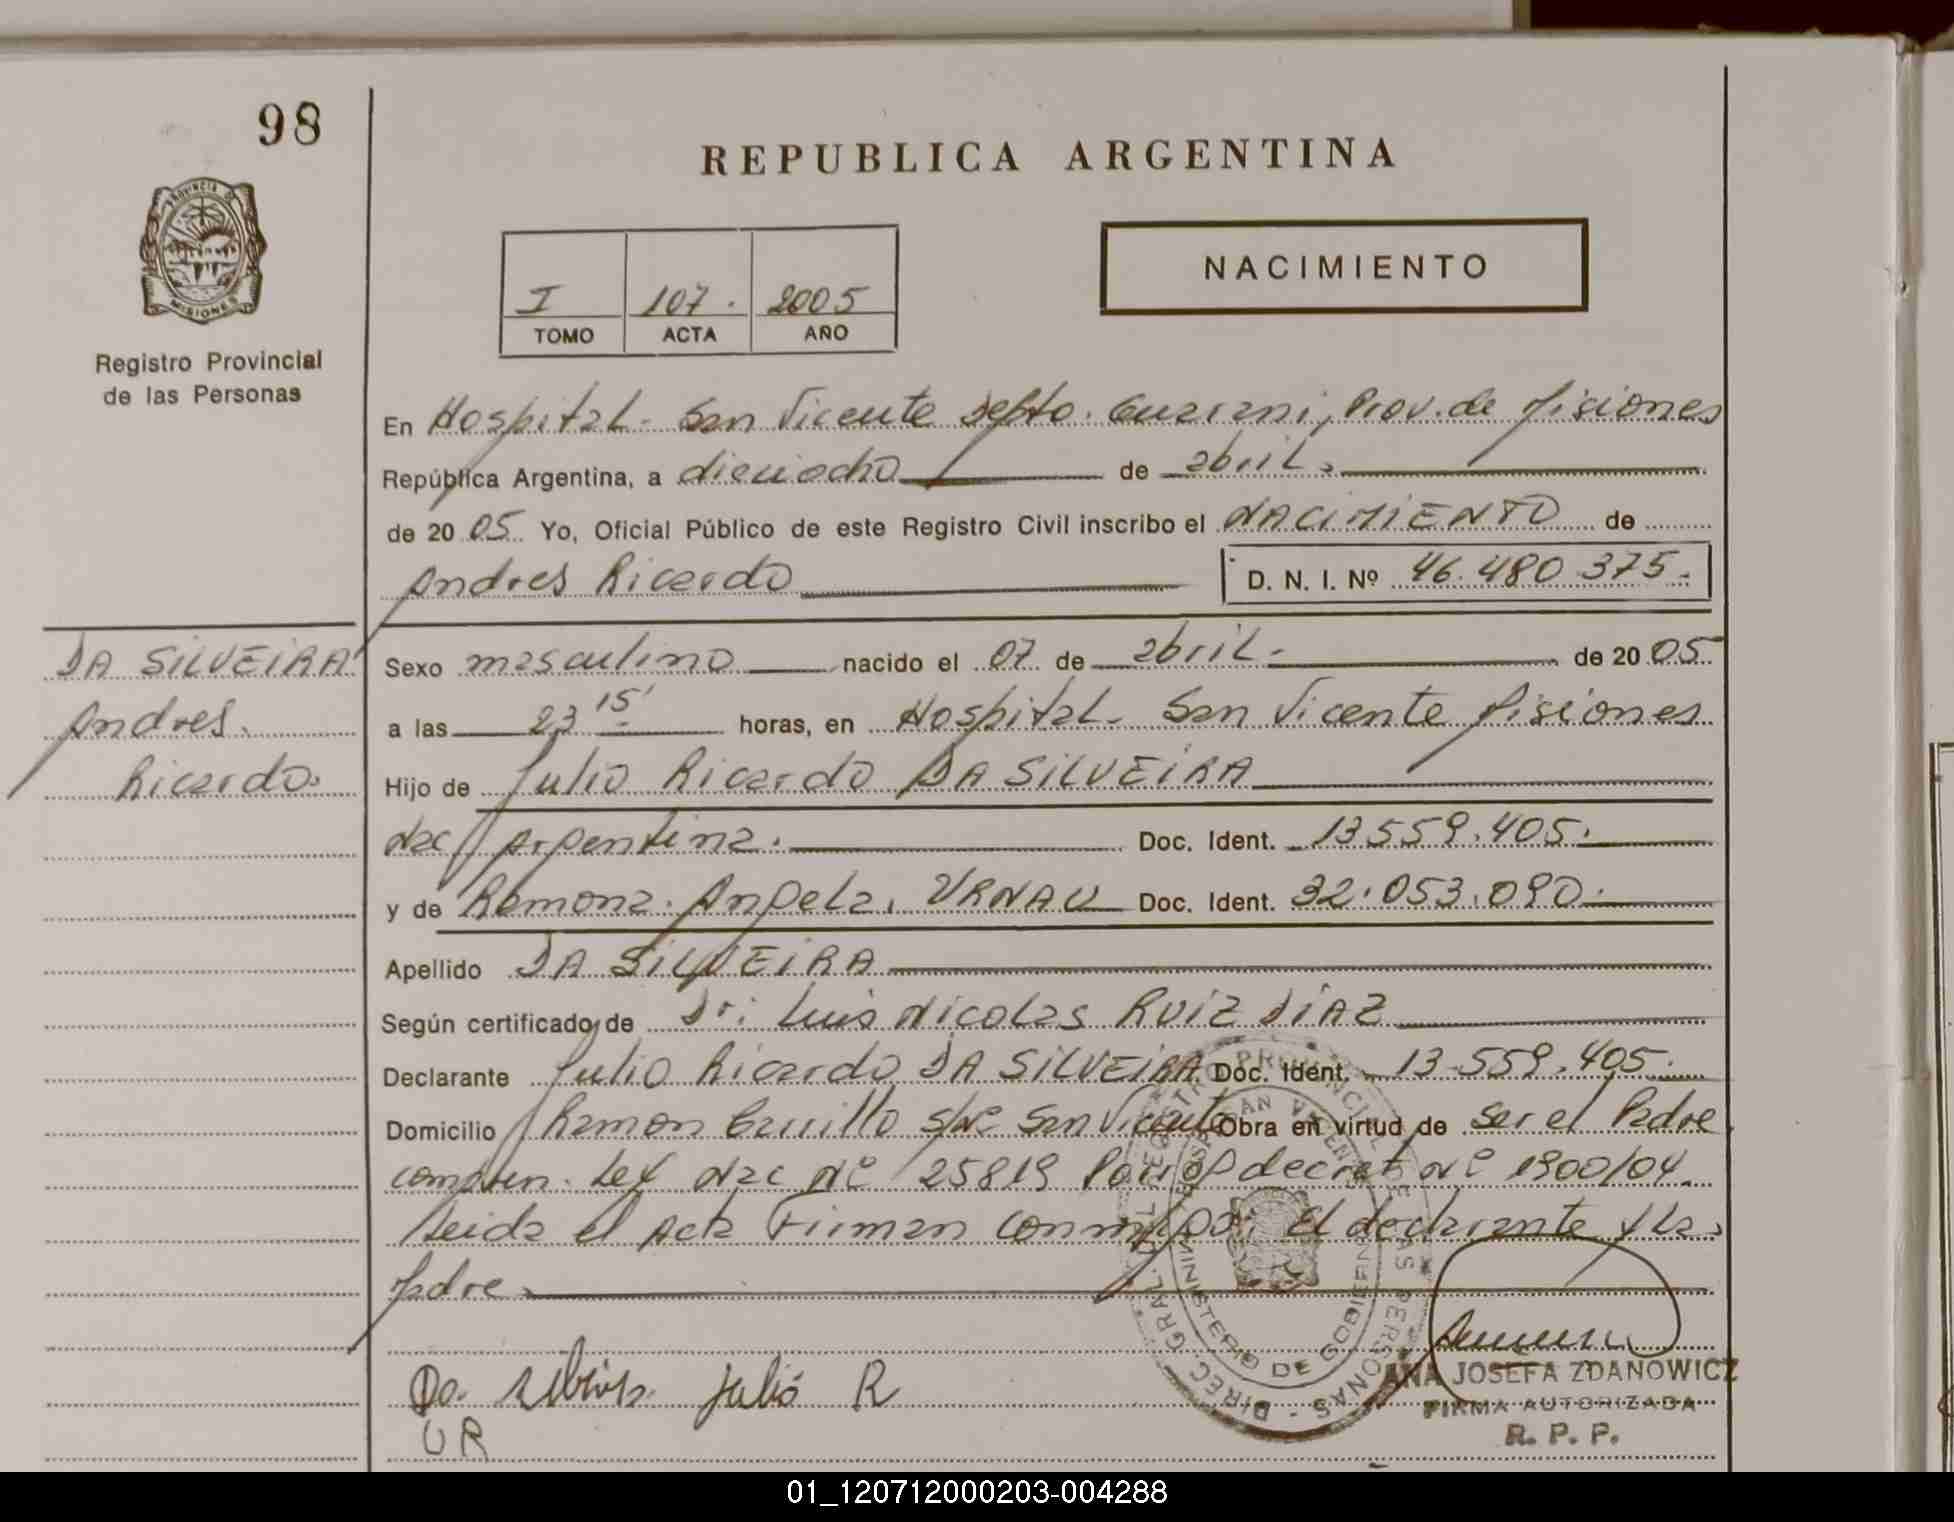 98
REPUBLICA ARGENTINA
PROVINCIA DE
MISIONES
Registro Provincial
de las Personas
I 107. 2005
TOMO ACTA AÑO
NACIMIENTO
En Hospital San Vicente Depto. Guarani, Prov. de Misiones
República Argentina, a dieciocho de abril.
de 2005 Yo, Oficial Público de este Registro Civil inscribo el NACIMIENTO de
Andres Ricardo D. N. I. Nº 46.480 375.
DA SILVEIRA
Andres.
Ricardo.
Sexo masculino nacido el 07 de abril. de 2005
a las 23 15' horas, en Hospital San Vicente Misiones
Hijo de Julio Ricardo DA SILVEIRA
Nac Argentina. Doc. Ident. 13.559.405.
y de Ramona. Angela. URNAU Doc. Ident. 32.053.090.
Apellido DA SILVEIRA
Según certificado de Dr: Luis Nicolas RUIZ DIAZ
Declarante Julio Ricardo DA SILVEIRA Doc. Ident. 13.559.405.
Domicilio Ramon Carrillo s/nº San Vicente Obra en virtud de ser el Padre
Ley Nac Nº 25819 decreto Nº 1900/04.
Leida el Acta Firman conmigo: El declarante y la
Madre.
DIREC. GRAL. DEL REGISTRO PROVINCIAL DE LAS PERSONAS -
MINISTERIO DE GOBIERNO
SAN VICENTE
Da. Julio R
UR
ANA JOSEFA ZDANOWICZ
FIRMA AUTORIZADA
R. P. P.
01_120712000203-004288